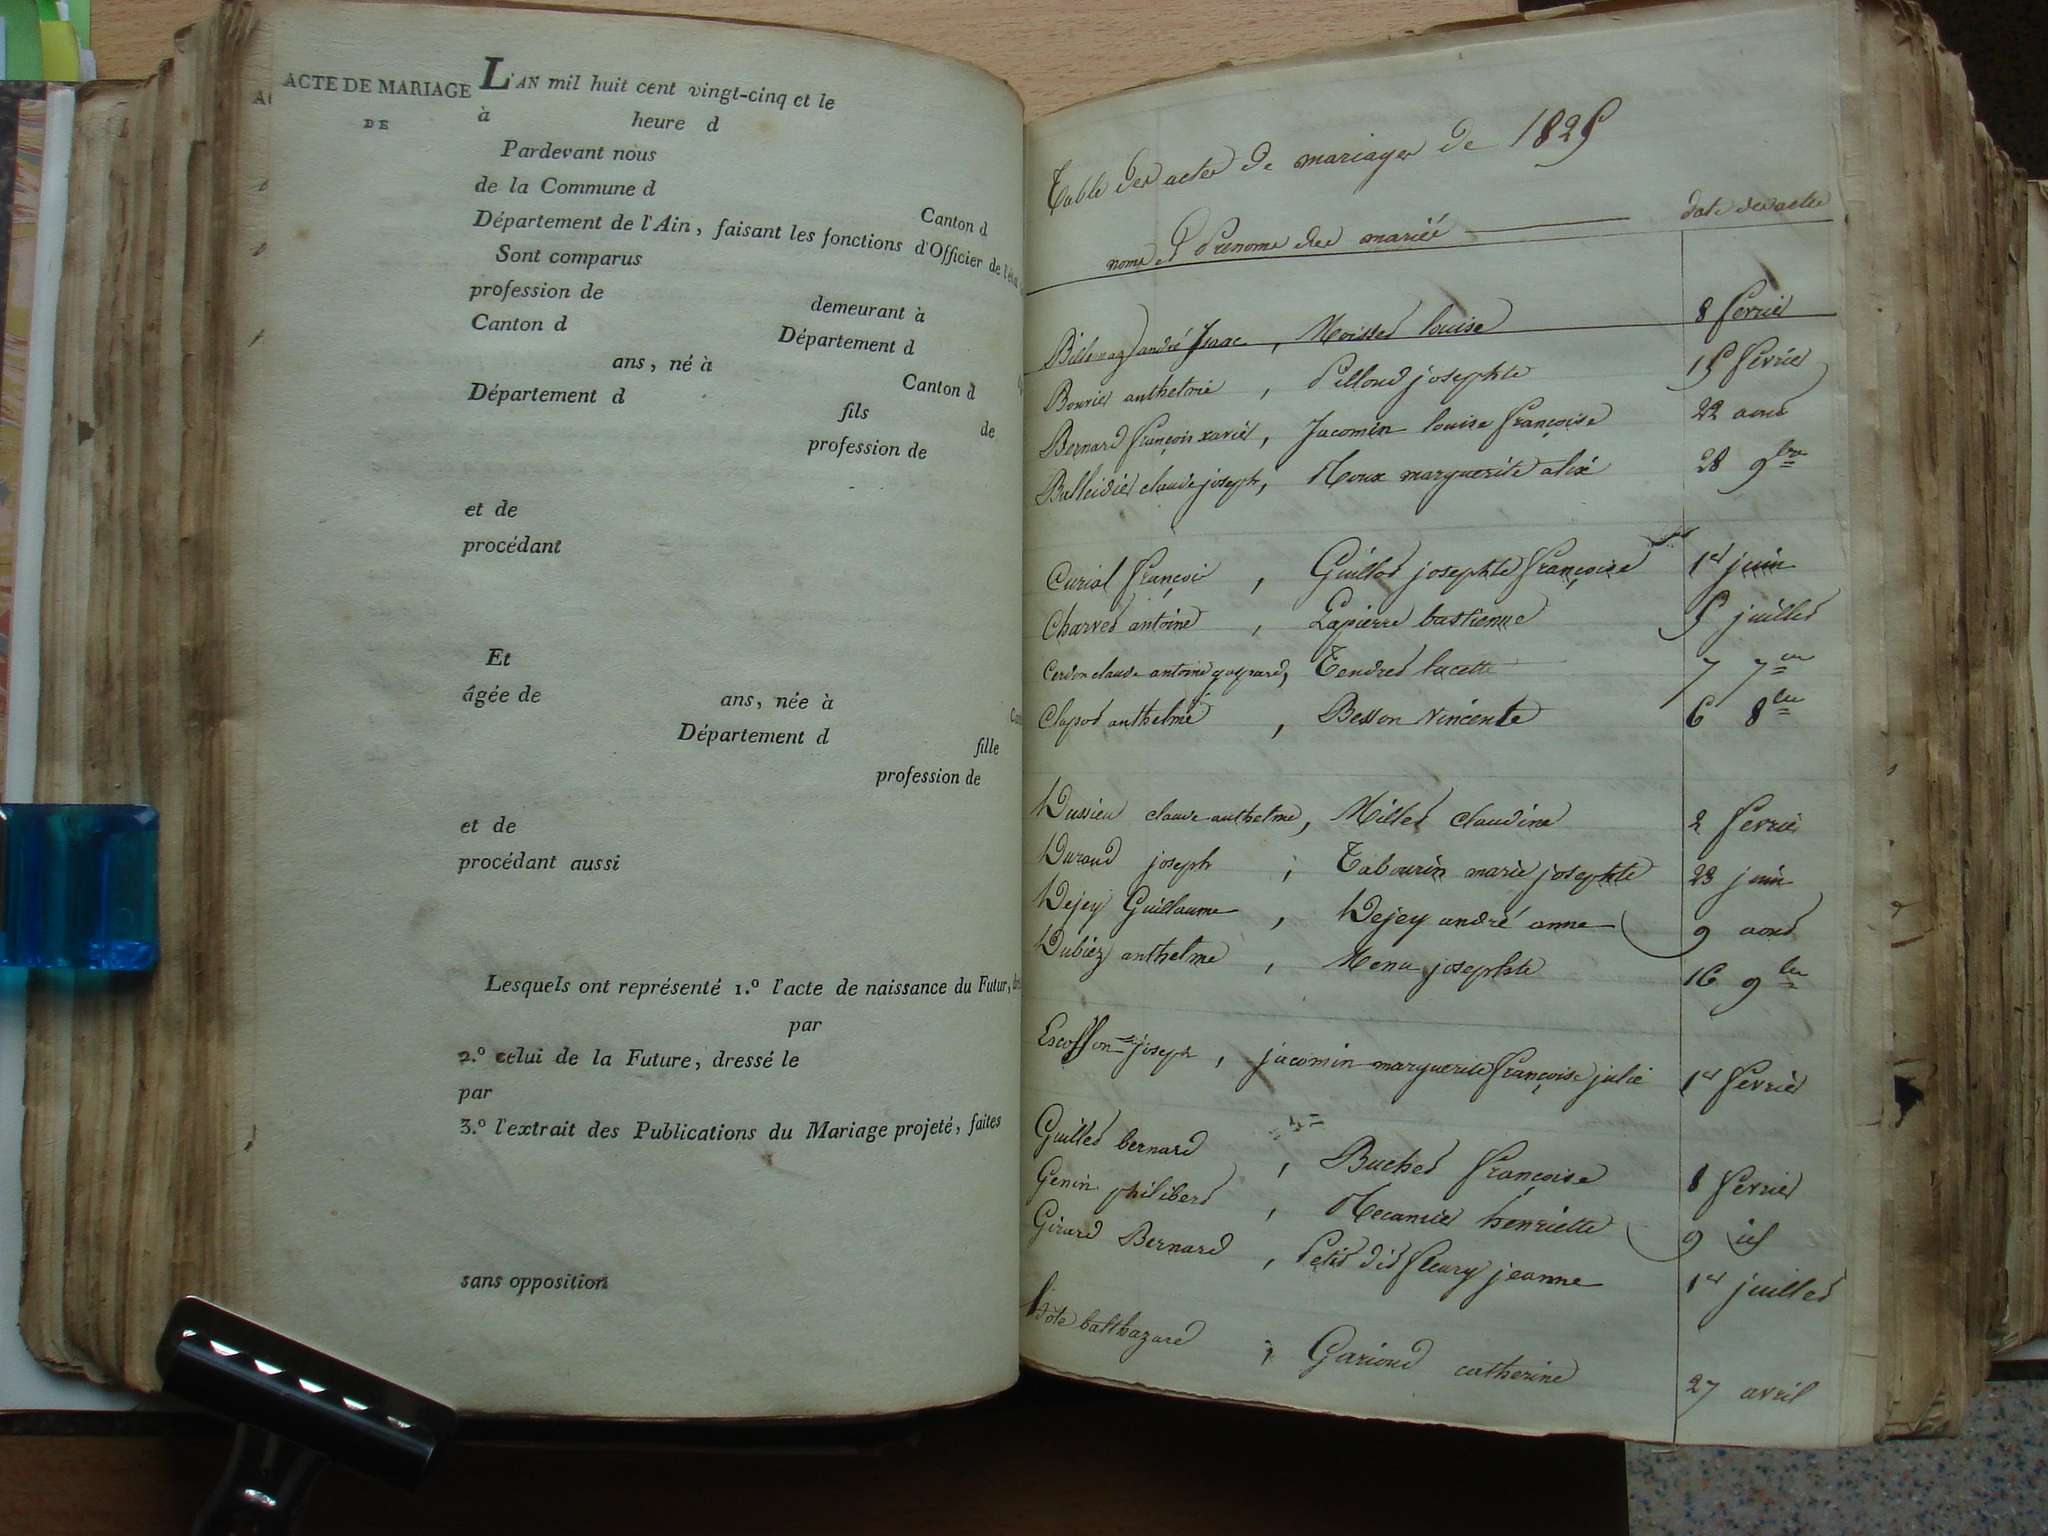 ACTE DE MARIAGE
DE
L'AN mil huit cent vingt-cinq et le
à heure d
Pardevant nous
de la Commune d
Canton d
Département de l'Ain, faisant les fonctions d'Officier de l'éta
Sont comparus
profession de demeurant à
Canton d Département d
ans, né à Canton d
Département d fils de
profession de
et de
procédant
Et
âgée de ans, née à
Département d fille
profession de
et de
procédant aussi
Lesquels ont représenté 1.º l'acte de naissance du Futur,
par
2.º celui de la Future, dressé le
par
3.º l'extrait des Publications du Mariage projeté, faites
sans opposition
Table des actes de mariages de 1825
noms et Prenoms des mariés date des actes
andré Isaac, louise 8 fevrier
Bouvier anthelme, Pilloud josephte 15 fevrier
Bernard françois xavier, Jacomin louise françoise 22 aout
Balleidier claude joseph, Roux marguerite alix 28 9bre
Curial françois, Guillot josephte françoise 1er juin
Charvet antoine, Lapierre bastienne 5 juillet
Cerdon claude antoine gaspard, Tendret lucette 7 7bre
Clapot anthelme, Besson vincente 6 8bre
Dussieu claude anthelme, Millet claudine 2 fevrier
Durand joseph, Tabourin marie josephte 23 juin
Dejey Guillaume, Dejey andré anne 9 aout
Dubiez anthelme, Menu josephte 16 9bre
Escoffon joseph, jacomin marguerite françoise julie 1er fevrier
Guillet bernard, Buchet françoise 8 fevrier
Genin philibert, henriette 9 id
Girard Bernard, Petit dit fleury jeanne 1er juillet
balthazard, Garioud catherine 27 avril